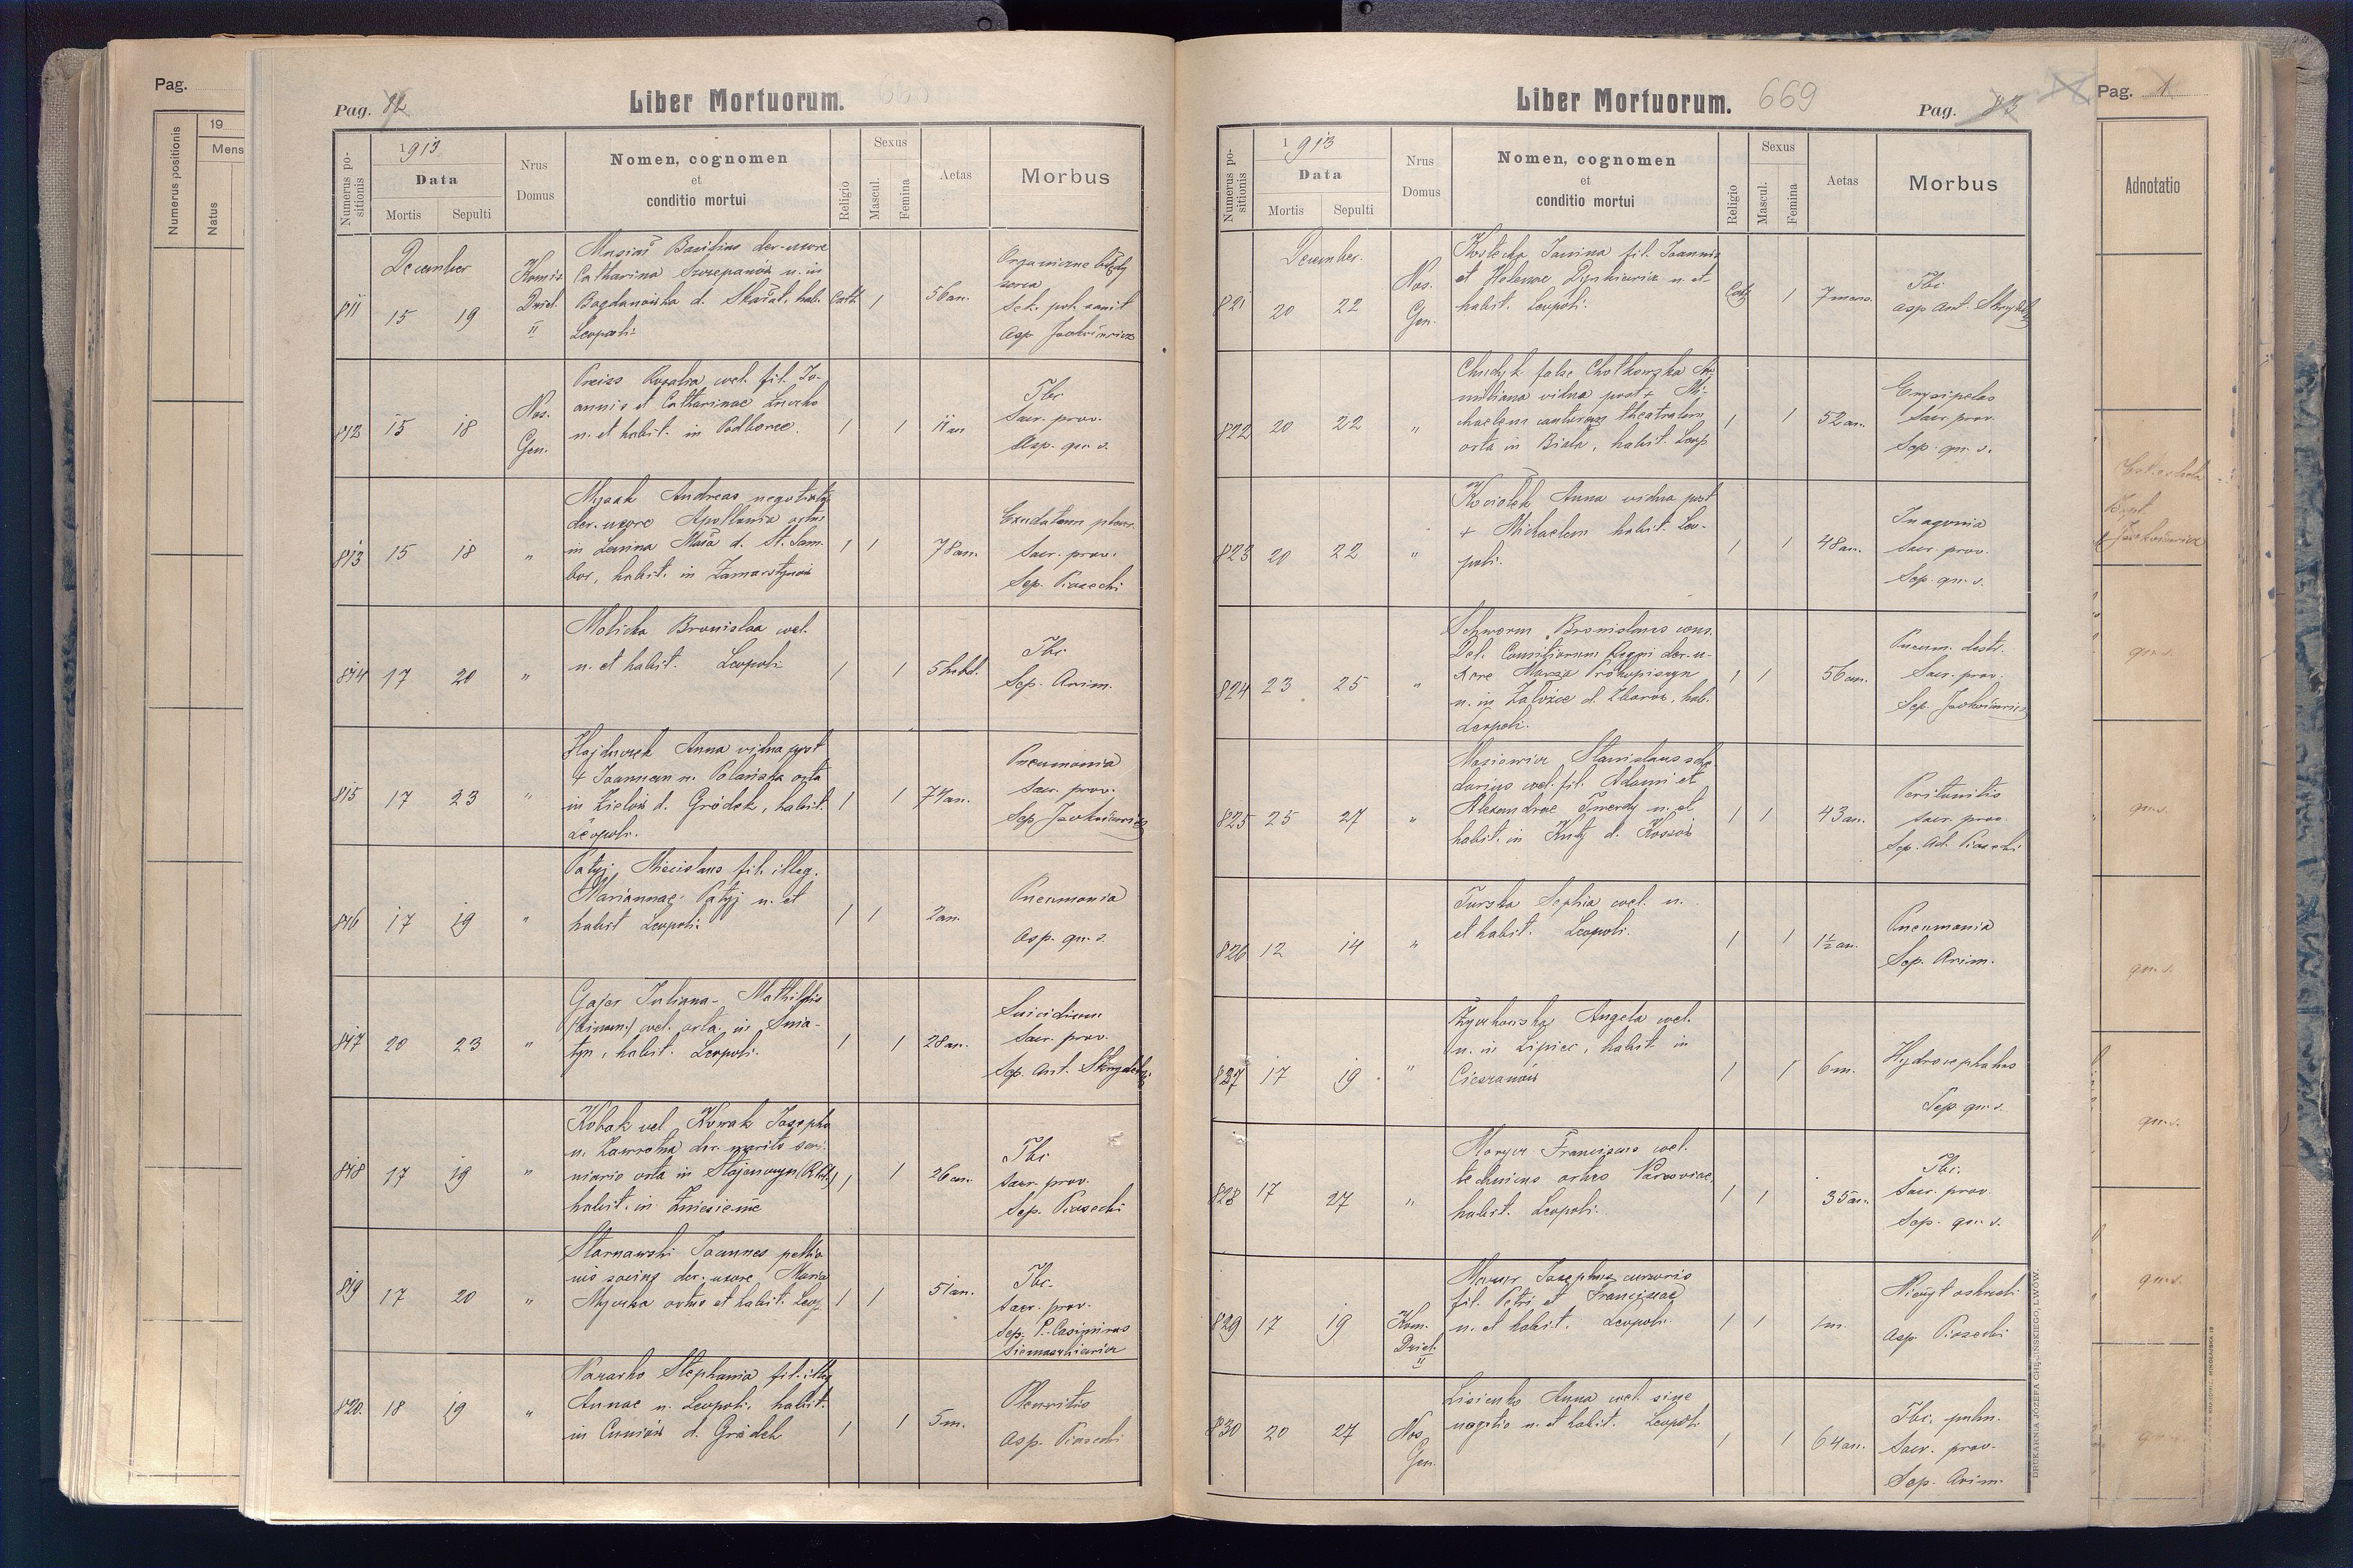 Pag.
19
Mens
Numerus positionis
Natus
Pag. 82
Liber Mortuorum.
Numerus positionis
1913
Data
Mortis
Sepulti
Nrus
Domus
Nomen, cognomen
et
conditio mortui
Religio
Sexus
Mascul.
Femina
Aetas
Morbus
December
811
15
19
Komis.
Dziel.
II
Catharina Szczepanów n. in
Leopoli.
Cath
1
56 an.
Organiczne błędy
serca
asp. Jaskiewicz
812
15
18
Nos.
Gen.
Preiss Rozalia cael. fil. Jo-
annis et Catharinae
n. et habit. in Podborce.
1
1
11 an
Tbc
Sacr. prov.
Asp. qu. s.
813
15
18
"
Andreas
der. uxore Apollonia ortus
in Lenina Mała d. St. Sam-
bor, habit. in Zamarstynów
1
1
78 an.
Exudatum pleur.
Sacr. prov.
Sep. Piasecki
814
17
20
"
Molicka Bronislaa cael.
n. et habit. Leopoli
1
1
5 hebd.
Tbc
Sep. Anim.
815
17
23
"
Hajduczek Anna vidua post
+ Joannem n. Polańska orta
d. Gródek, habit.
Leopoli.
1
1
74 an.
Pneumonia
Sacr. prov.
Sep. Jaskiewicz
816
17
19
"
Patyj Miecislaus fil. illeg.
Mariannae Patyj n. et
habit Leopoli.
1
1
2 an.
Pneumonia
asp. qu. s.
817
20
23
"
Gajer Juliana - Mathildis
(binom.) cael. orta in Snia-
tyn, habit. Leopoli.
1
1
28 an.
Suicidium
Sacr. prov.
Sep. Ant.
818
17
19
"
Kobak vel Nowak Josepha
n. Zawrotna der. marito
habit. in Zniesienie
1
1
26 an.
Tbc
Sacr. prov.
Sep. Piasecki
819
17
20
"
Starnawski Joannes pellio
nis socius der. uxore Maria
ortus et habit. Leop.
1
1
51 an.
Tbc.
Sacr. prov.
Sep. P. Casimirus
Siemaszkiewicz
820.
18
19
"
Nazarko Stephania fil. illeg
Annae n. Leopoli, habit.
in Cuniów d. Gródek
1
1
5 m.
Pleuritis
asp. Piasecki
Liber Mortuorum.
669
Pag. 83
Numerus positionis
1913
Data
Mortis
Sepulti
Nrus
Domus
Nomen, cognomen
et
conditio mortui
Religio
Sexus
Mascul.
Femina
Aetas
Morbus
December.
821
20
22
Nos.
Gen.
Kostecka Janina fil. Joannis
et Helenae Dynkiewicz n. et
habit. Leopoli.
Cath
1
7 mens.
Tbc
asp. Ant.
822
20
22
"
Chudyk false Chotkowska
vidua post + Mi-
chaelem cantorem theatralem
orta in Biała, habit. Leop.
1
1
52 an.
Erysipelas
Sacr. prov
Sep. qu. s.
823
20
22
"
Kociołek Anna vidua post
+ Michaelem habit. Leo-
poli.
1
1
48 an.
In agonia
Sacr. prov.
Sep. qu. s.
824
23
25
"
Schworm Bronislaus cons.
der. u-
xore Maria Prokopiszyn
n. in Załoźce d. Zborów, hab.
Leopoli.
1
1
56 an.
Pneum. dextr.
Sacr. prov.
Sep. Jaskiewicz
825
25
27
"
Mosiewicz Stanislaus
cael. fil. Adami et
Alexandrae Twerdy n. et
habit. in Kuty d. Kossów
1
1
43 an.
Peritonitis
Sacr. prov.
Sep. Ad. Piasecki
826
12
14
"
Turska Sophia cael. n.
et habit. Leopoli.
1
1
1½ an.
Pneumonia
Sep. Anim.
827
17
19
"
Angela cael.
n. in Lipiec, habit in
Cieszanów
1
1
6 m.
Hydrocephalus
Sep. qu. s.
828
17
27
"
Franciscus cael.
technicus ortus Varsoviae,
habit. Leopoli.
1
1
35 an.
Tbc.
Sacr. prov.
Sep. qu. s.
829
17
19
Kom.
Dziel.
II
Mazur Josephus cursoris
fil. Petri et Franciscae
n. et habit. Leopoli.
1
1
1 m.
Nieżyt oskrzeli
asp. Piasecki
830
20
27
Nos
Gen.
Lisienko Anna cael. sine
negotio n. et habit. Leopoli
1
1
64 an.
Tbc. pulm.
Sacr. prov.
Sep. Anim.
DRUKARNIA JÓZEFA CHĘCIŃSKIEGO, LWÓW.
Pag. 1
Adnotatio
qu. s.
qu. s.
qu. s.
qu. s.
qu. s.